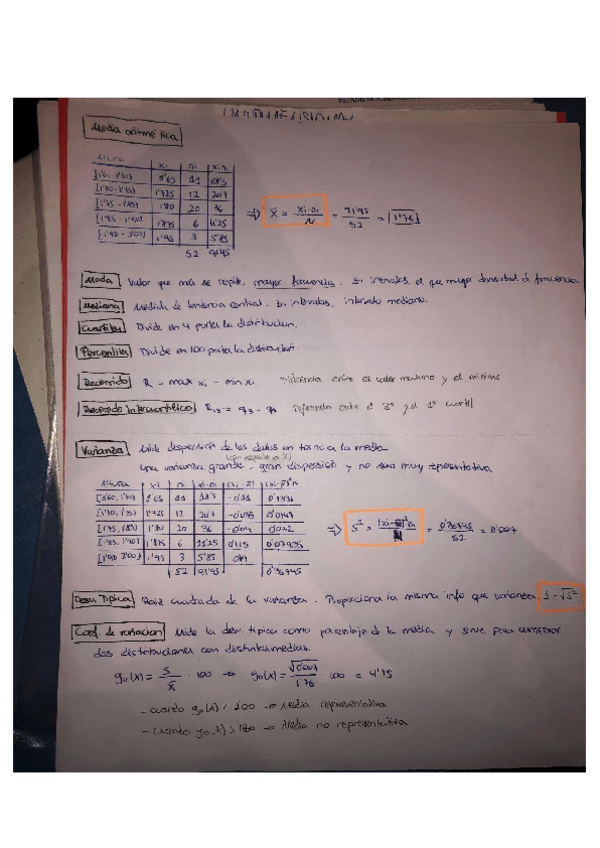 Media aritmética
Altura xi ni xi·ni
[1'60 - 1'70) 1'65 11
[1'70 - 1'75) 1'725 12 20'7
[1'75 - 1'80) 1'80 20 36
[1'85 - 1'90) 1'875 6 11'25
[1'90 - 2'00) 1'95 3 5'85
52 91'95
=> x̄ = xi·ni / N = 91'95 / 52 = 1'76
Moda Valor que más se repite, mayor frecuencia. En intervalos, el que mayor densidad de frecuencia
Mediana Medida de tendencia central. En intervalos, intervalo mediano.
Cuartiles Divide en 4 partes la distribucion.
Percentiles Divide en 100 partes la distribucion.
Recorrido R = max xi - min xi Diferencia entre el valor maximo y el minimo
Recorrido intercuartílico = q3 - q1 Diferencia entre el 3º y el 1º cuartil
Varianza Mide dispersion de los datos en torno a la media
(con respecto a x̄)
Una varianza grande - gran dispersión y no será muy representativa
Altura xi ni xi·ni (xi - x̄) (xi - x̄)²·ni
[1'60, 1'70) 1'65 11 -0'11
[1'70, 1'75) 1'725 12 20'7
[1'75, 1'85) 1'80 20 36 0'04
[1'85, 1'90) 1'875 6 11'25 0'115
[1'90, 2'00) 1'95 3 5'85 0'19
52 91'95
=> S² = = = 0'007
Desv. Típica Raiz cuadrada de la varianza. Proporciona la misma info que varianza S = √S²
Coef. de variacion Mide la desv. tipica como porcentaje de la media y sirve para comparar
dos distribuciones con distintas medias.
g₀(x) = S / x̄ · 100 => g₀(x) = √0'007 / 1'76 · 100 = 4'75
- cuando g₀(x) < 100 -> Media representativa
- cuando g₀(x) > 100 -> Media no representativa